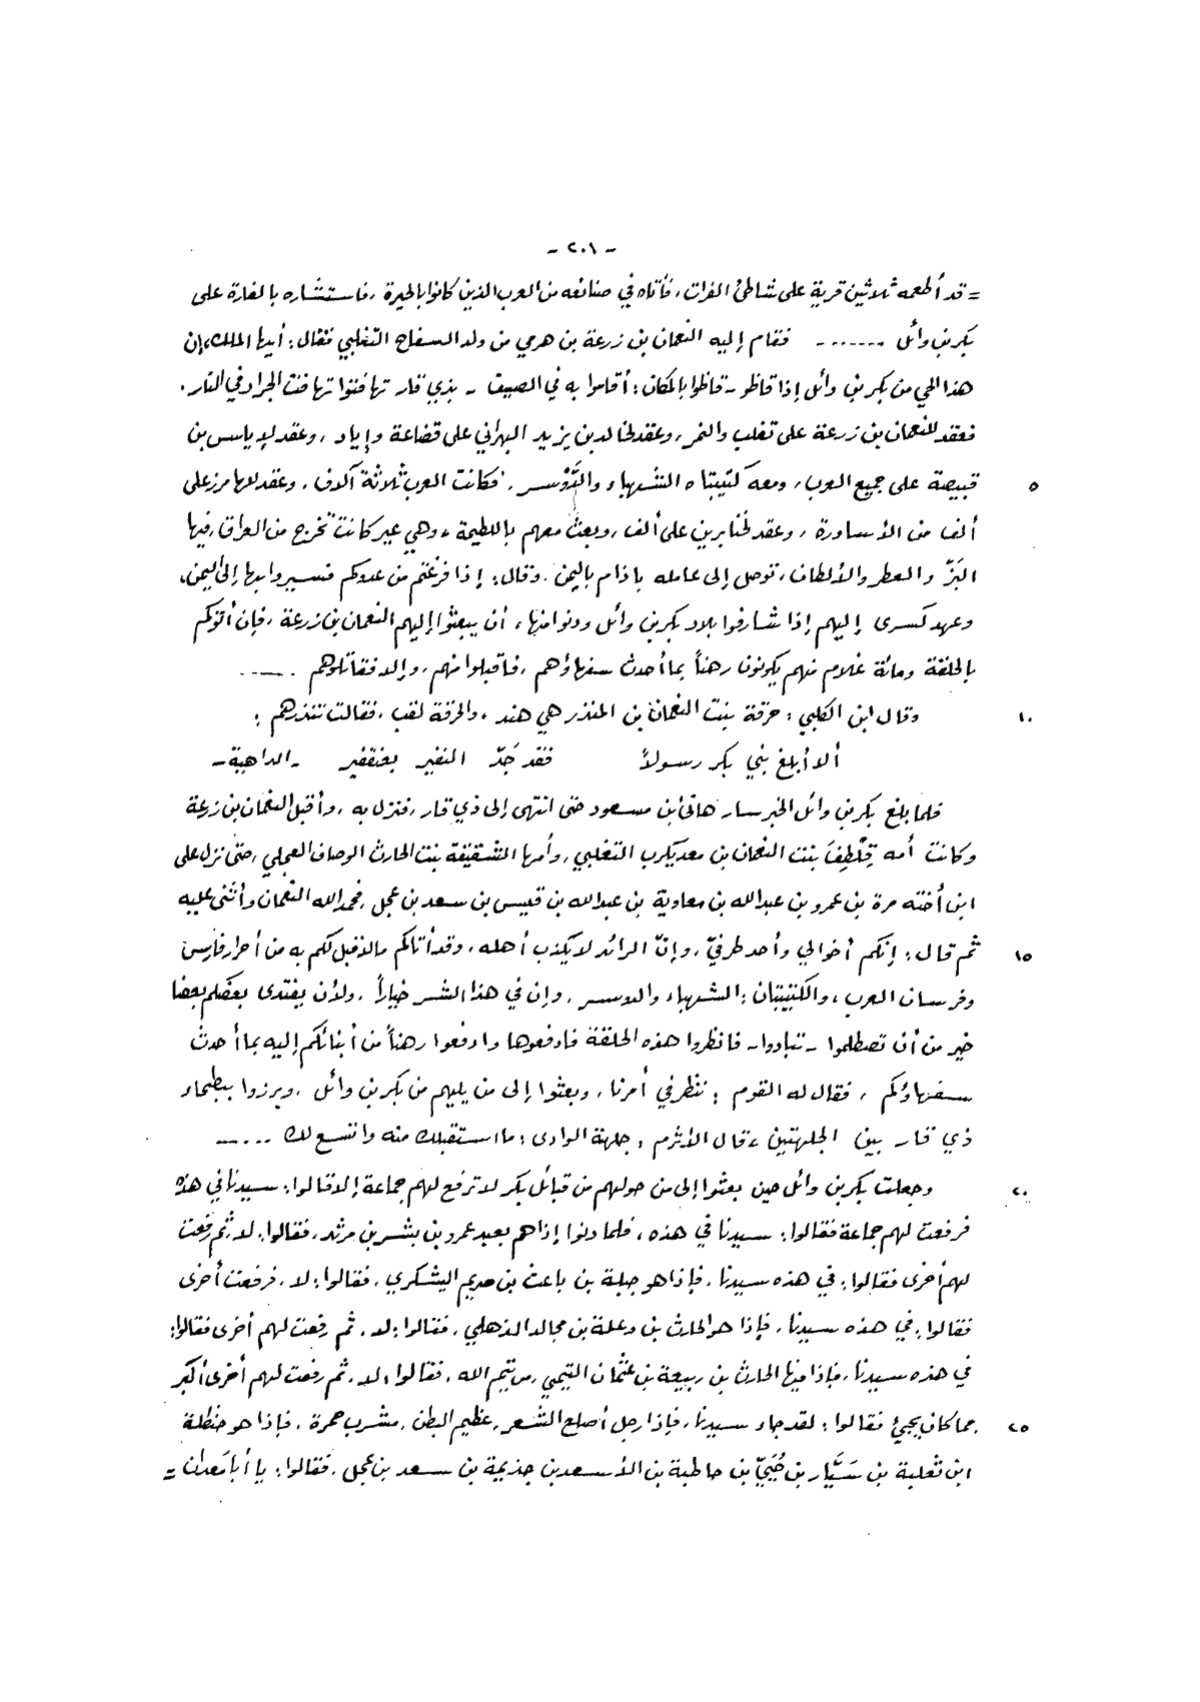 - ٢٠١ -
= قد أطعمه ثلاثين قرية على شاطئ الفرات، فأتاه في صنائعه من العرب الذين كانوا بالحيرة، فاستشاره بالغارة على
بكر بن وائل ....... فقام إليه النعمان بن زرعة بن هرمي من ولد السفاح التغلبي فقال: أيها الملك إن
هذا الحي من بكر بن وائل إذا قاظوا - قاظوا بالمكان: أقاموا به في الصيف - بذي قار تهافتوا تهافت الجراد في النار.
فعقد للنعمان بن زرعة على تغلب والنمر، وعقد لخالد بن يزيد البهراني على قضاعة وإياد، وعقد لإياس بن
٥ قبيصة على جميع العرب، ومعه كتيبتاه الشهباء والدَّوْسر، فكانت العرب ثلاثة آلاف، وعقد للهامرز على
ألف من الأساورة، وعقد لخنابرين على ألف، وبعث معهم باللطيمة، وهي عير كانت تخرج من العراق، فيها
البَزّ والعطر والألطاف، توصل إلى عامله باذام باليمن. وقال: إذا فرغتم من عدوكم فسيروا بها إلى اليمن،
وعهد كسرى إليهم إذا شارفوا بلاد بكر بن وائل ودنوا منها، أن يبعثوا إليهم النعمان بن زرعة، فإن أتوكم
بالحلقة ومائة غلام منهم يكونون رهناً بما أحدث سفهاؤهم، فاقبلوا منهم، وإلا فقاتلوهم .....
١٠ وقال ابن الكلبي: حرقة بنت النعمان بن المنذر هي هند، والحرقة لقب، فقالت تنذرهم:
ألا أبلغ بني بكر رسولاً فقد جَدّ النفير بعنقفير - الداهية -
فلما بلغ بكر بن وائل الخبر سار هانئ بن مسعود حتى انتهى إلى ذي قار، فنزل به، وأقبل النعمان بن زرعة
وكانت أمه قِلْطِفَ بنت النعمان بن معد يكرب التغلبي، وأمها الشقيقة بنت الحارث الوصاف العجلي، حتى نزل على
ابن أخته مرة بن عمرو بن عبدالله بن معاوية بن عبدالله بن قيس بن سعد بن عجل، فحمد الله النعمان وأثنى عليه
١٥ ثم قال: إنكم أخوالي وأحد طرفيّ، وإنّ الرائد لا يكذب أهله، وقد أتاكم مالا قبل لكم به من أحرار فارس
وفرسان العرب، والكتيبتان: الشهباء والدوسر، وإن في هذا الشر خياراً، ولأن يفتدى بعضكم بعضا
خير من أن تصطلموا - تبادوا - فانظروا هذه الحلقة فادفعوها وادفعوا رهناً من أبنائكم إليه بما أحدث
سفهاؤكم، فقال له القوم: ننظر في أمرنا، وبعثوا إلى من يليهم من بكر بن وائل، وبرزوا ببطحاء
ذي قار بين الجلهتين، قال الأثرم: جلهة الوادى: ما استقبلك منه واتسع لك .....
٢٠ وجعلت بكر بن وائل حين بعثوا إلى من حولهم من قبائل بكر لا ترفع لهم جماعة إلا قالوا: سيدنا في هذه
فرفعت لهم جماعة فقالوا: سيدنا في هذه، فلما دنوا إذا هم بعبد عمرو بن بشر بن مرثد، فقالوا: لا، ثم رفعت
لهم أخرى فقالوا: في هذه سيدنا، فإذا هو جبلة بن باعث بن صريم اليشكري، فقالوا: لا، فرفعت أخرى
فقالوا: في هذه سيدنا، فإذا هو الحارث بن وعلة بن مجالد الذهلي، فقالوا: لا، ثم رفعت لهم أخرى فقالوا:
في هذه سيدنا، فإذا فيها الحارث بن ربيعة بن عثمان التيمي، من تيم الله، فقالوا: لا، ثم رفعت لهم أخرى أكبر
٢٥ مما كان يجيئ فقالوا: لقد جاء سيدنا، فإذا رجل أصلع الشعر، عظيم البطن، مشرب حمرة، فإذا هو حنظلة
ابن ثعلبة بن سَيَّار بن حُيَيّ بن حاطبة بن الأسعد بن جذيمة بن سعد بن عجل، فقالوا: يا أبا مَعدان =